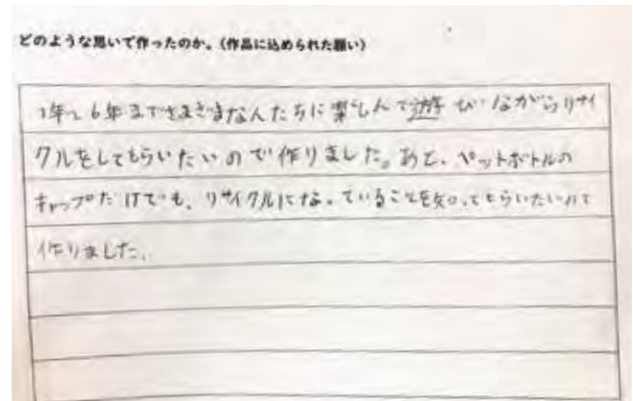 どのような思いで作ったのか。(作品に込められた願い)
1年〜6年までさまざまなんたちに楽しんで遊びながらリサイ
クルをしてもらいたいので作りました。あと、ペットボトルの
キャップだけでも、リサイクルになっていることを知ってもらいたいので
作りました。